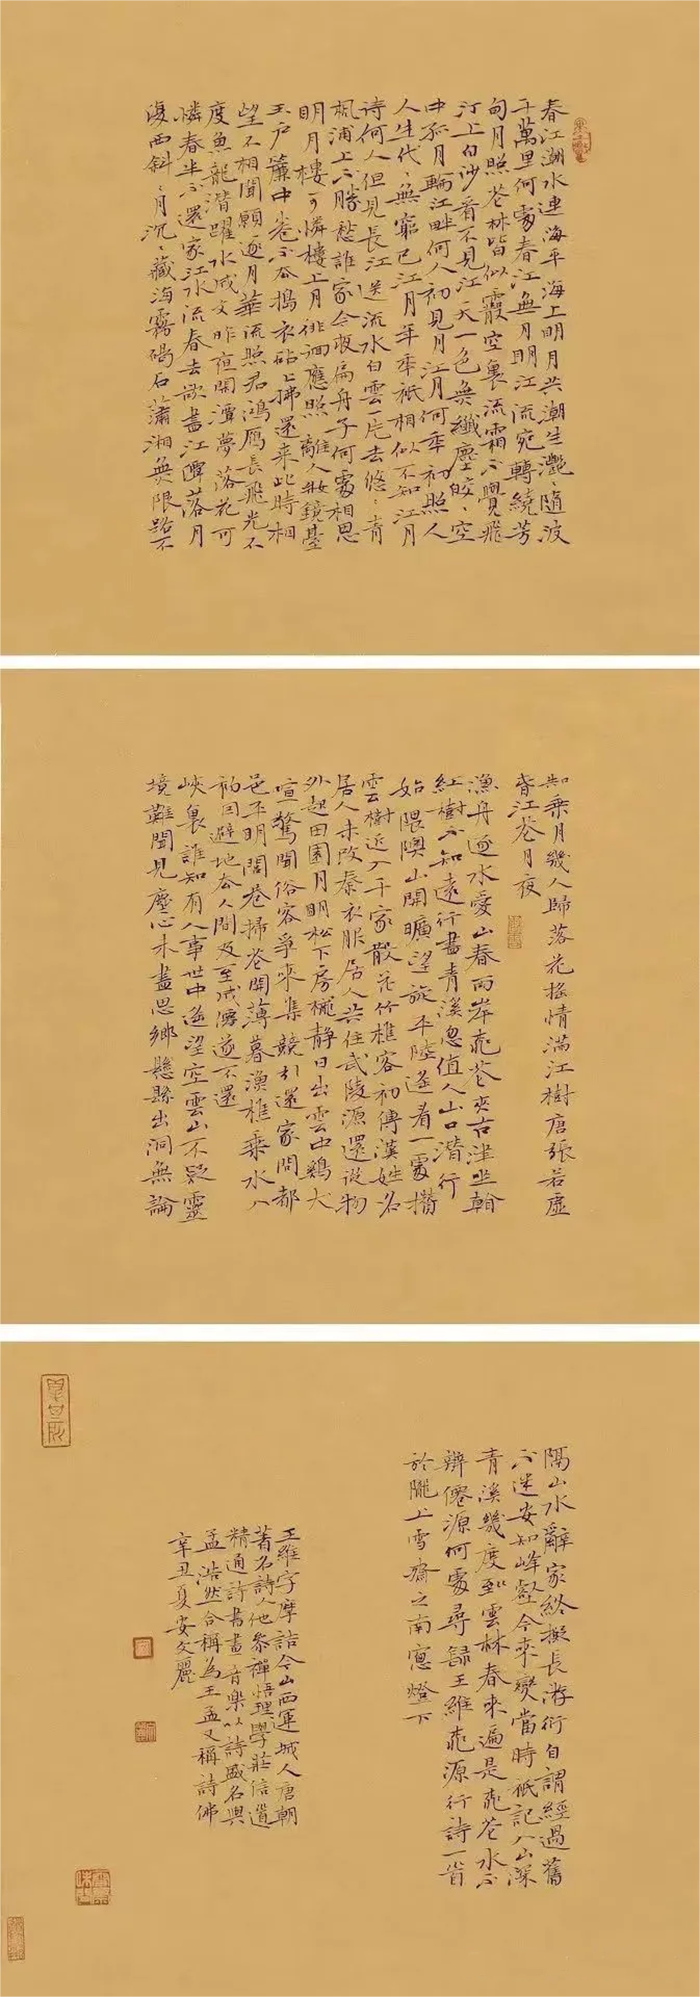 春江潮水連海平海上明月共潮生灔灔隨波
千萬里何處春江無月明江流宛轉繞芳
甸月照花林皆似霰空裏流霜不覺飛
汀上白沙看不見江天一色無纖塵皎皎空
中孤月輪江畔何人初見月江月何年初照人
人生代代無窮已江月年年祇相似不知江月
待何人但見長江送流水白雲一片去悠悠青
楓浦上不勝愁誰家今夜扁舟子何處相思
明月樓可憐樓上月徘徊應照離人妝鏡臺
玉戶簾中卷不去搗衣砧上拂還來此時相
望不相聞願逐月華流照君鴻雁長飛光不
度魚龍潛躍水成文昨夜閑潭夢落花可
憐春半不還家江水流春去欲盡江潭落月
復西斜斜月沉沉藏海霧碣石瀟湘無限路不
知乘月幾人歸落花搖情滿江樹唐張若虛
春江花月夜
漁舟逐水愛山春兩岸桃花夾古津坐看
紅樹不知遠行盡青溪忽值人山口潛行
始隈隩山開曠望旋平陸遙看一處攢
雲樹近入千家散花竹樵客初傳漢姓名
居人未改秦衣服居人共住武陵源還從物
外起田園月明松下房櫳靜日出雲中雞犬
喧驚聞俗客爭來集競引還家問都
邑平明閭巷掃花開薄暮漁樵乘水入
初因避地去人間及至成僊遂不還
峽裏誰知有人事世中遙望空雲山不疑靈
境難聞見塵心未盡思鄉縣出洞無論
隔山水辭家終擬長游衍自謂經過舊
不迷安知峰壑今來變當時祇記入山深
青溪幾度到雲林春來遍是桃花水不
辨僊源何處尋錄王維桃源行詩一首
於隴上雪齋之南窗燈下
王維字摩詰今山西運城人唐朝
著名詩人他參禪悟理學莊信道
精通詩書畫音樂以詩盛名與
孟浩然合稱為王孟又稱詩佛
辛丑夏安文麗